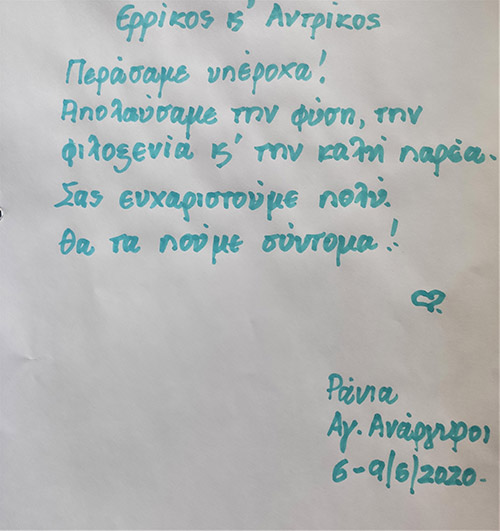 Ερρίκος κ' Αντρίκος
Περάσαμε υπέροχα!
Απολαύσαμε την φύση, την
φιλοξενία κ' την καλή παρέα.
Σας ευχαριστούμε πολύ.
Θα τα πούμε σύντομα!
Ράνια
Αγ. Ανάργυροι
6-9/6/2020.